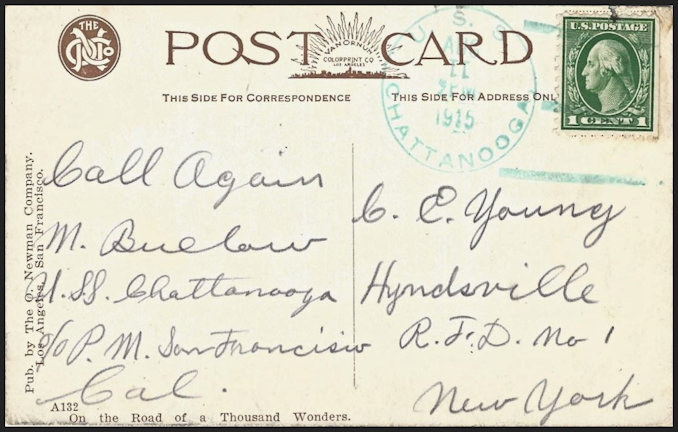 THE
NCo
POST CARD
VAN ORNUM
COLORPRINT CO
LOS ANGELES
THIS SIDE FOR CORRESPONDENCE
THIS SIDE FOR ADDRESS ONLY
U. S. S.
CHATTANOOGA
11
1915
U.S. POSTAGE
1 CENT 1
Pub. by The O. Newman Company.
Los Angeles, San Francisco.
Call Again
M. Buelow
U.S.S. Chattanooga
c/o P. M. San Francisco
Cal.
C. E. Young
Hyndsville
R. F. D. No 1
New York
A132
On the Road of a Thousand Wonders.